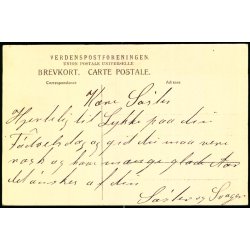 VERDENSPOSTFORENINGEN.
UNION POSTALE UNIVERSELLE
BREVKORT. CARTE POSTALE.
Correspondance Adresse
Kære Søster
Hjertelig til Lykke paa din
Fødselsdag og gid du maa være
rask og have mange glade Aar
ønsker af din
Søster og Svoger